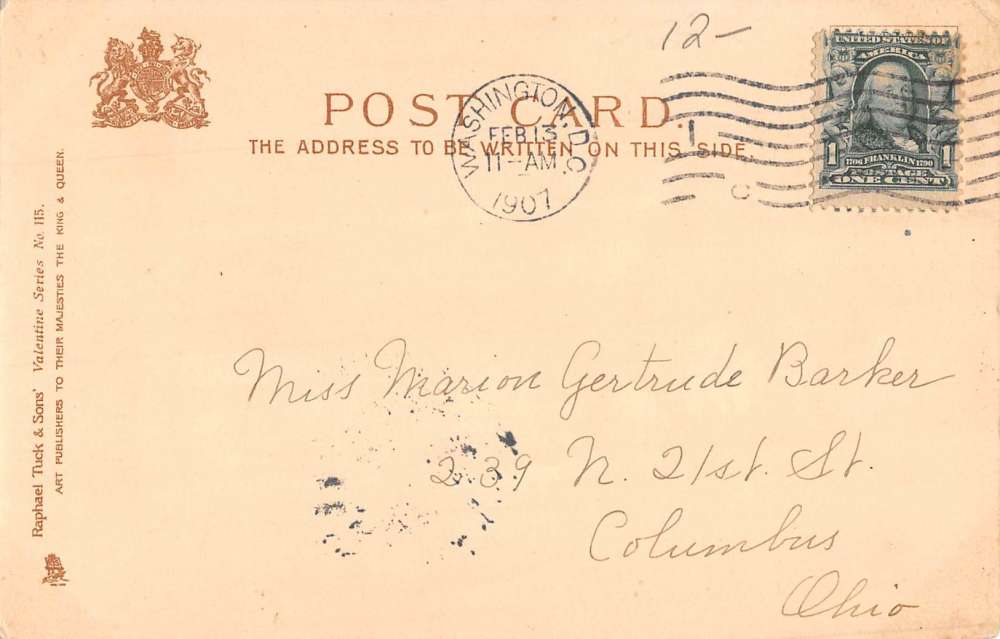 12-
POST CARD.
THE ADDRESS TO BE WRITTEN ON THIS SIDE.
WASHINGTON, D.C.
FEB 13
11-AM
1907
1
C
UNITED STATES OF
AMERICA
1
1
1706 FRANKLIN 1790
POSTAGE
ONE CENT
Raphael Tuck & Sons' Valentine Series No. 115.
ART PUBLISHERS TO THEIR MAJESTIES THE KING & QUEEN.
Miss Marion Gertrude Barker
239 N. 21st. St.
Columbus
Ohio